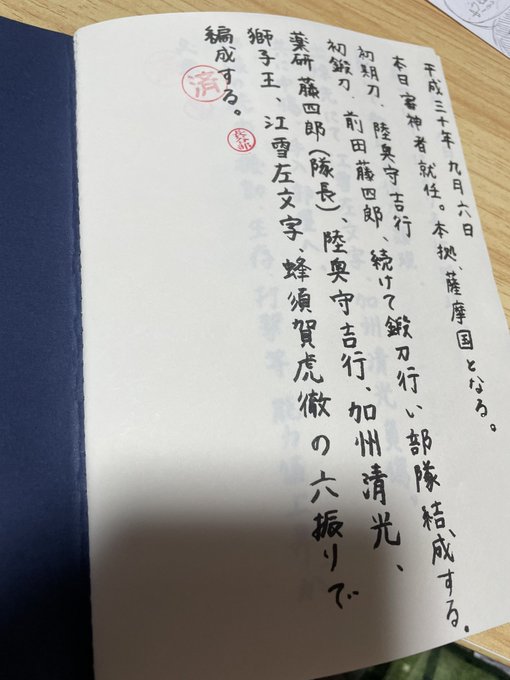 平成三十年 九月六日
本日審神者就任。本拠、薩摩国となる。
初期刀、陸奥守吉行
初鍛刀、前田藤四郎、続けて鍛刀行い部隊結成する。
薬研藤四郎(隊長)、陸奥守吉行、加州清光、
獅子王、江雪左文字、蜂須賀虎徹の六振りで
編成する。
済
長谷部